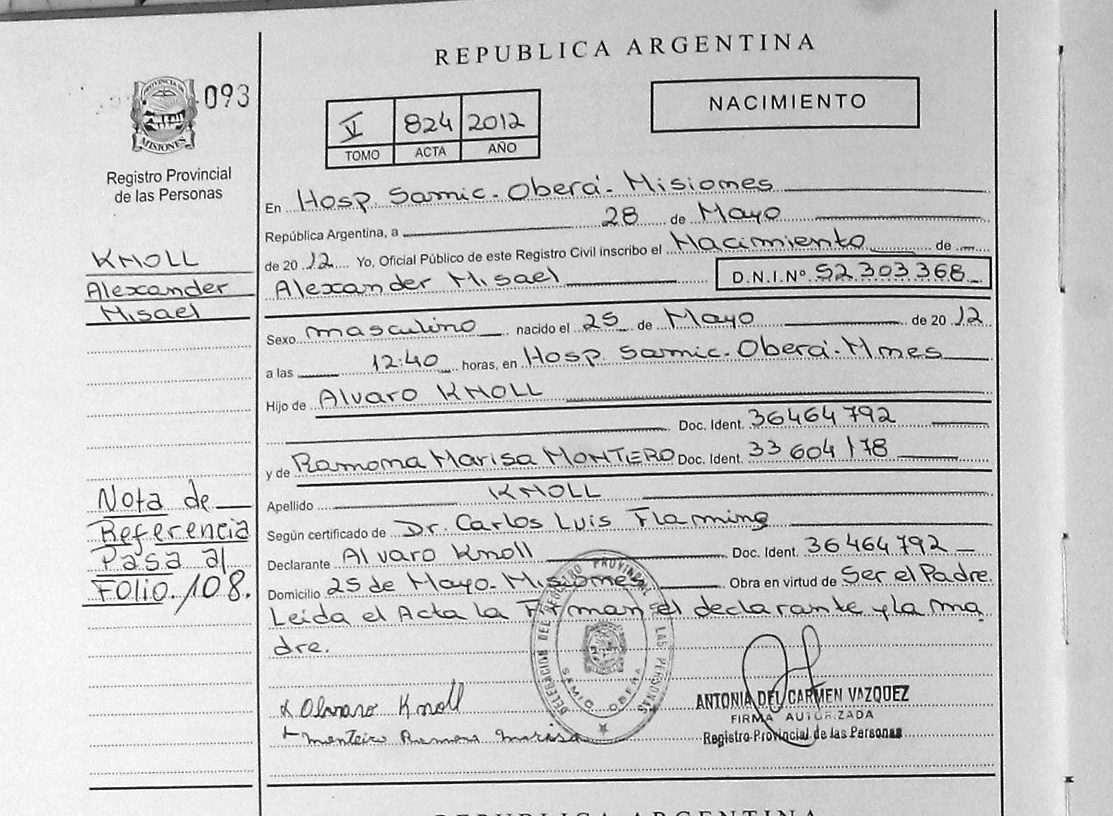 REPUBLICA ARGENTINA
PROVINCIA DE
MISIONES
093
Registro Provincial
de las Personas
V 824 2012
TOMO ACTA AÑO
NACIMIENTO
En Hosp. Samic. Oberá - Misiones
República Argentina, a 28 de Mayo
de 2012 Yo, Oficial Público de este Registro Civil inscribo el Nacimiento de
Alexander Misael D.N.I.Nº 52 303 368
Sexo masculino nacido el 25 de Mayo de 2012
a las 12:40 horas, en Hosp. Samic. Oberá - Mnes
Hijo de Alvaro KNOLL
Doc. Ident. 36464792
y de Ramona Marisa MONTERO Doc. Ident. 33 604 178
Apellido KNOLL
Según certificado de Dr. Carlos Luis Flaming
Declarante Alvaro Knoll Doc. Ident. 36464792
Domicilio 25 de Mayo - Misiones Obra en virtud de Ser el Padre.
Leida el Acta la Firman el declarante y la ma
dre.
KNOLL
Alexander
Misael
Nota de
Referencia
Pasa al
Folio 108.
DELEGACION DEL REGISTRO PROVINCIAL DE LAS PERSONAS
OBERA
Alvaro Knoll
Ramona Marisa
ANTONIA DEL CARMEN VAZQUEZ
FIRMA AUTORIZADA
Registro Provincial de las Personas
REPUBLICA ARGENTINA